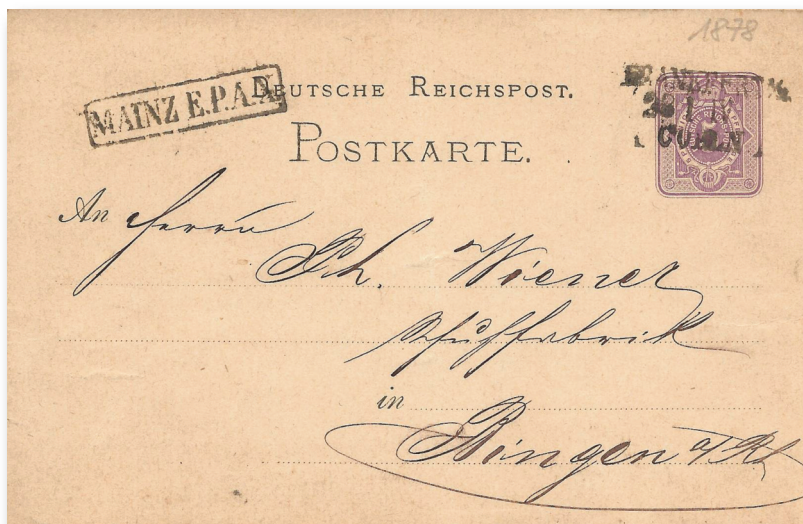 1878
MAINZ E.P.A.X
DEUTSCHE REICHSPOST.
POSTKARTE.
COELN
An Herrn
Ph. Wiener
Schuhfabrik
in
Bingen a/Rh